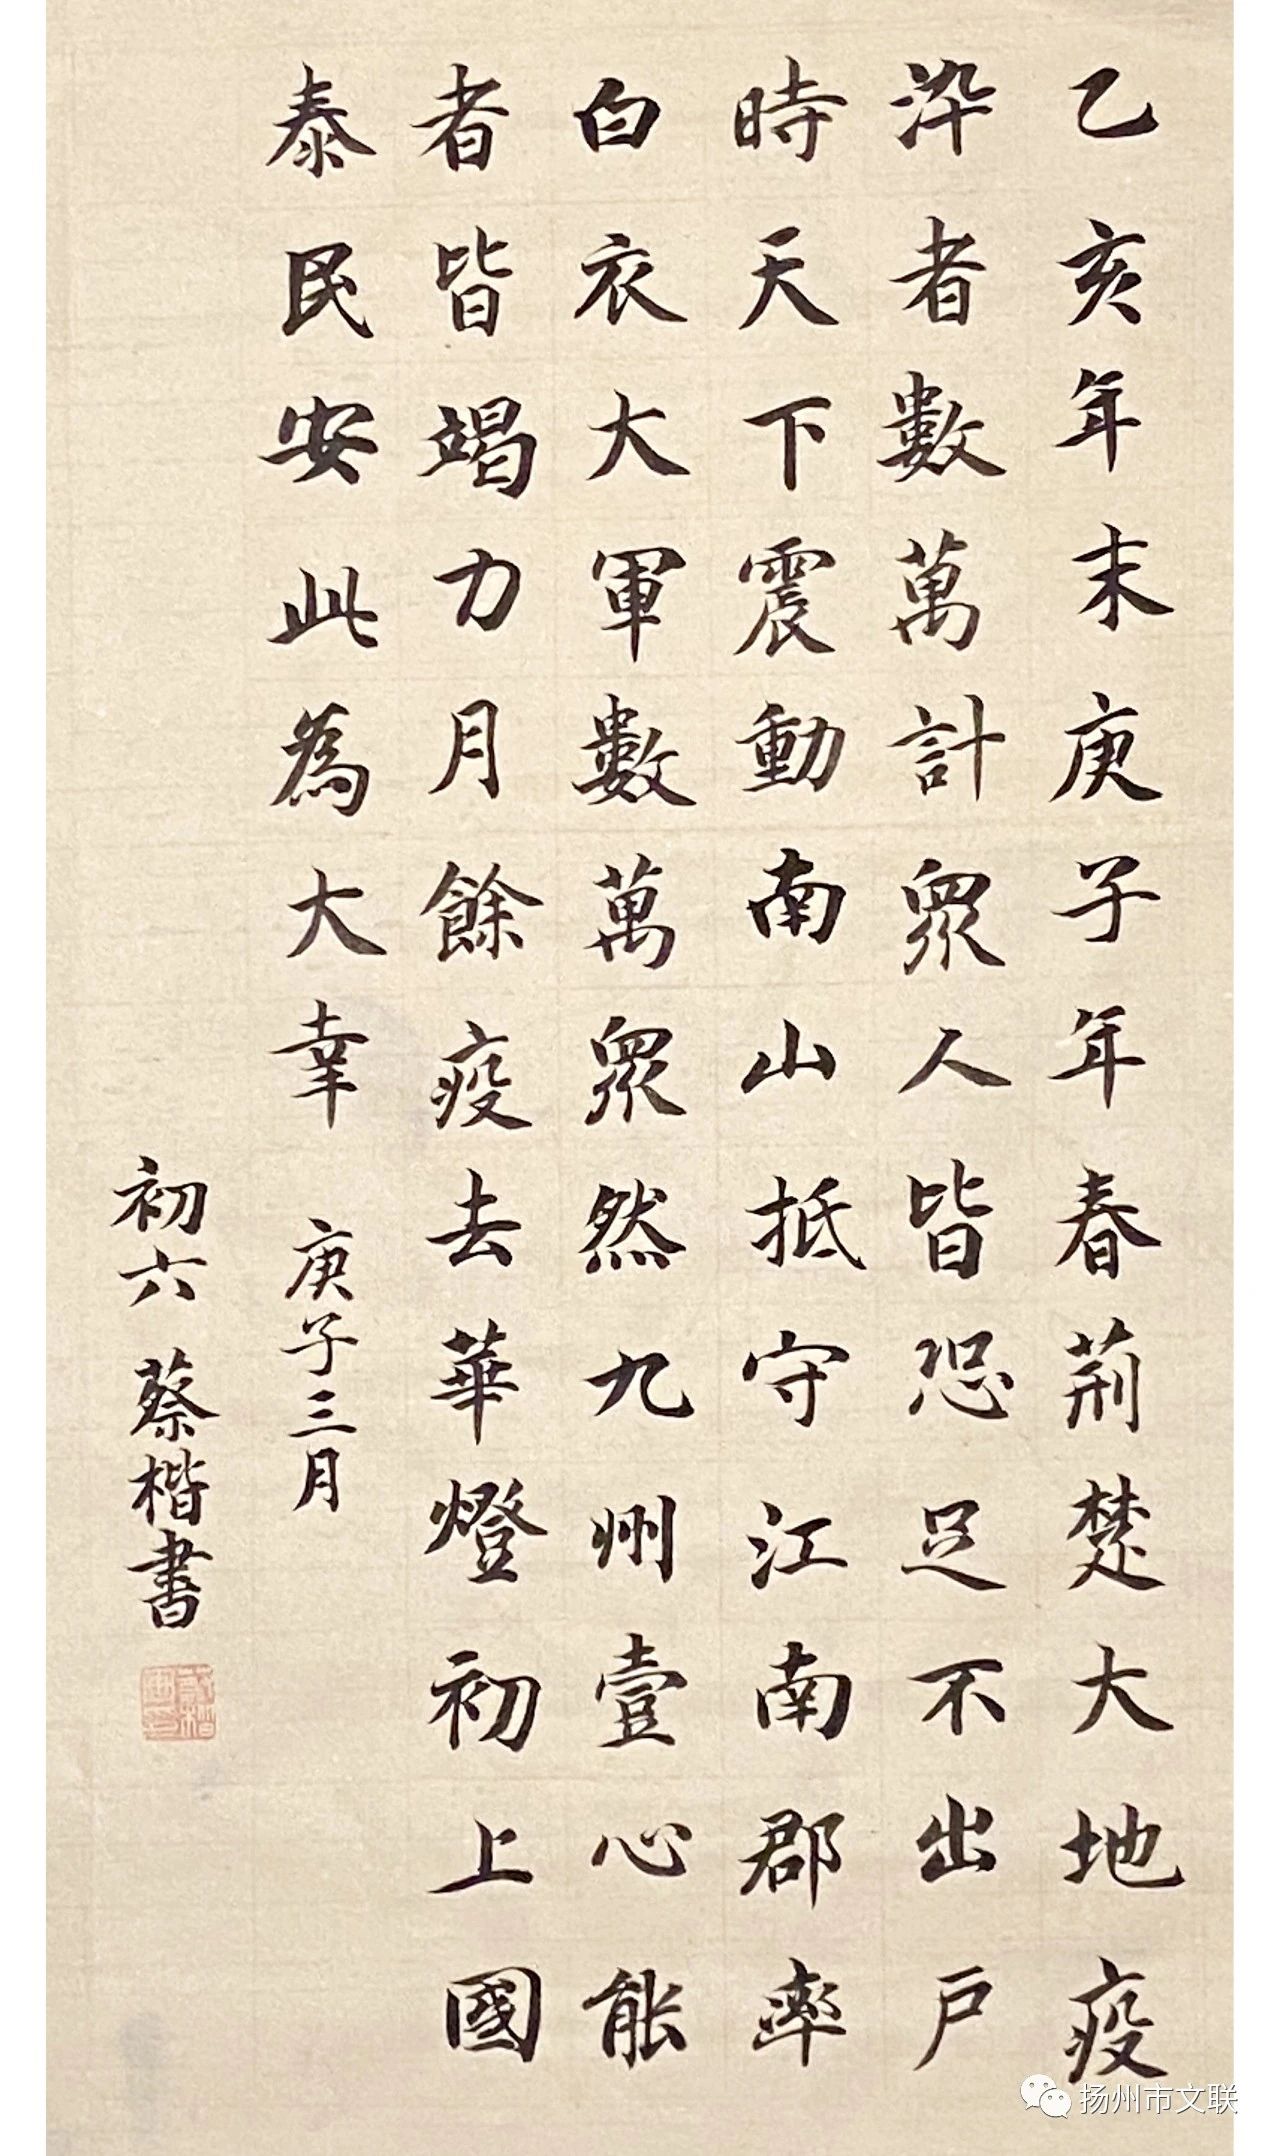 乙亥年末庚子年春荊楚大地疫
沴者數萬計眾人皆恐足不出戶
時天下震動南山抵守江南郡率
白衣大軍數萬眾然九州壹心能
者皆竭力月餘疫去華燈初上國
泰民安此為大幸 庚子三月
初六 蔡楷書
扬州市文联